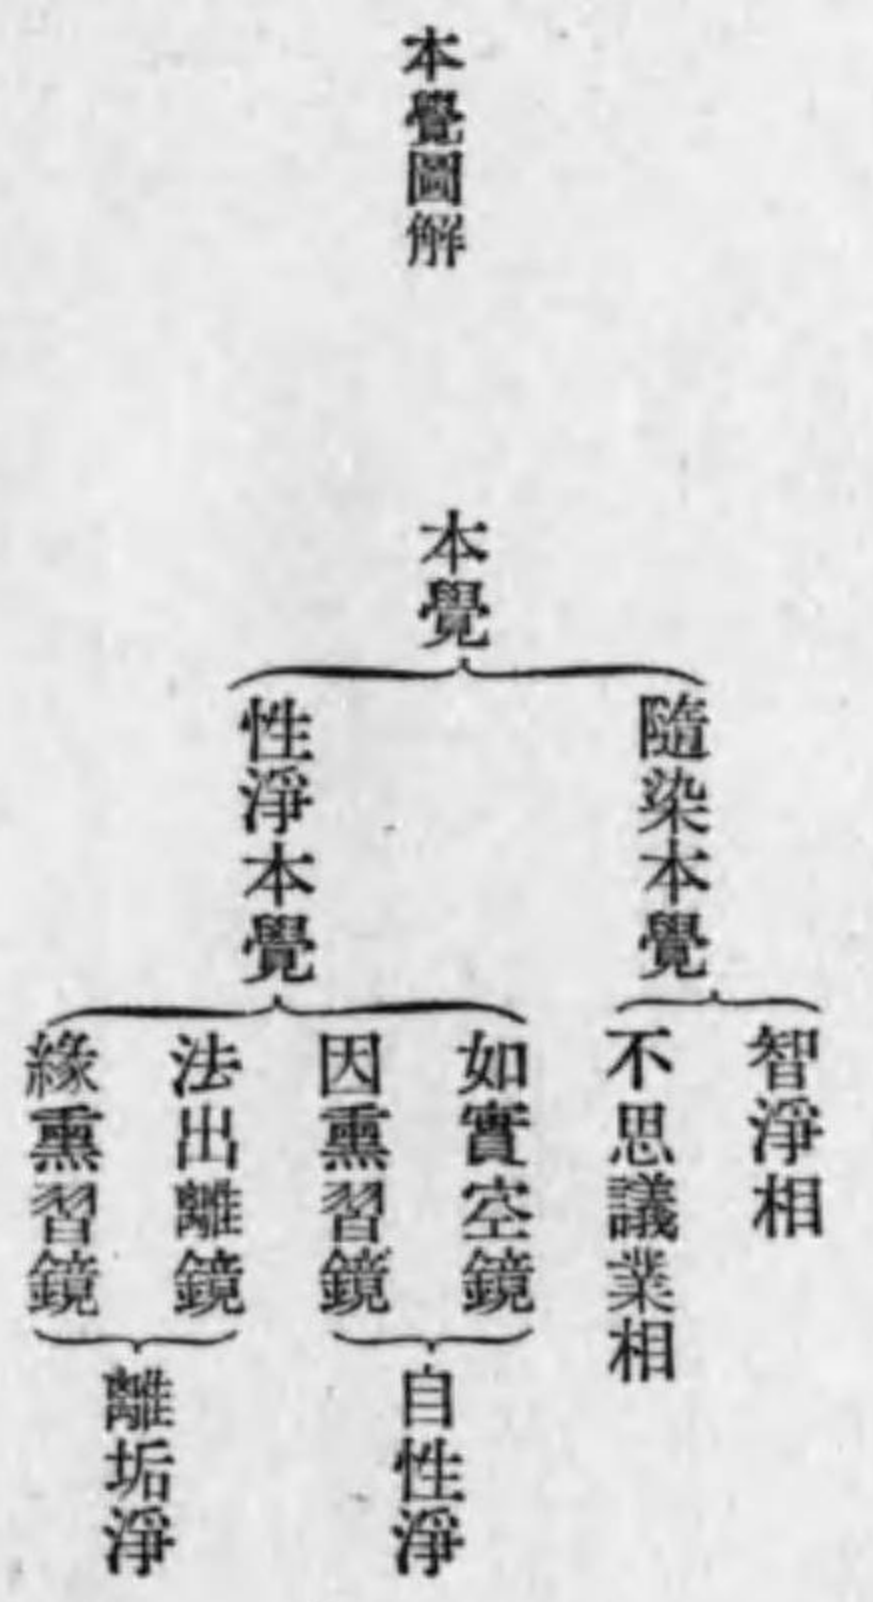 本覺圖解
本覺
隨染本覺
智淨相
不思議業相
性淨本覺
如實空鏡
因熏習鏡
自性淨
法出離鏡
緣熏習鏡
離垢淨